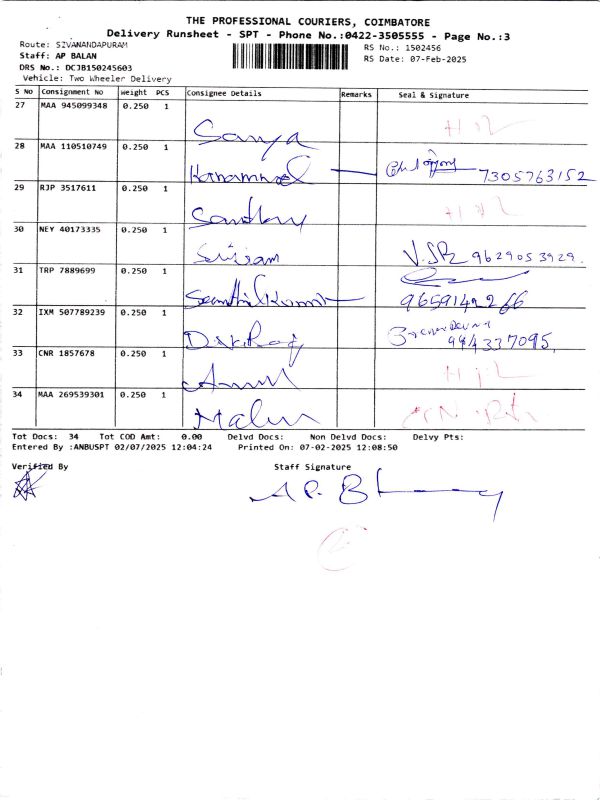 THE PROFESSIONAL COURIERS, COIMBATORE
Delivery Runsheet - SPT - Phone No.:0422-3505555 - Page No.:3
Route: SIVANANDAPURAM
RS No.: 1502456
Staff: AP BALAN
RS Date: 07-Feb-2025
DRS No.: DCJB150245603
Vehicle: Two Wheeler Delivery
S No Consignment No Weight PCS Consignee Details Remarks Seal & Signature
27 MAA 945099348 0.250 1
Sanya
28 MAA 110510749 0.250 1
7305763152
29 RJP 3517611 0.250 1
30 NEY 40173335 0.250 1
Sriram V.SR 9629053929.
31 TRP 7889699 0.250 1
Senthilkumar 9659142266
32 IXM 507789239 0.250 1
9944337095,
33 CNR 1857678 0.250 1
34 MAA 269539301 0.250 1
Tot Docs: 34 Tot COD Amt: 0.00 Delvd Docs: Non Delvd Docs: Delvy Pts:
Entered By :ANBUSPT 02/07/2025 12:04:24 Printed On: 07-02-2025 12:08:50
Verified By Staff Signature